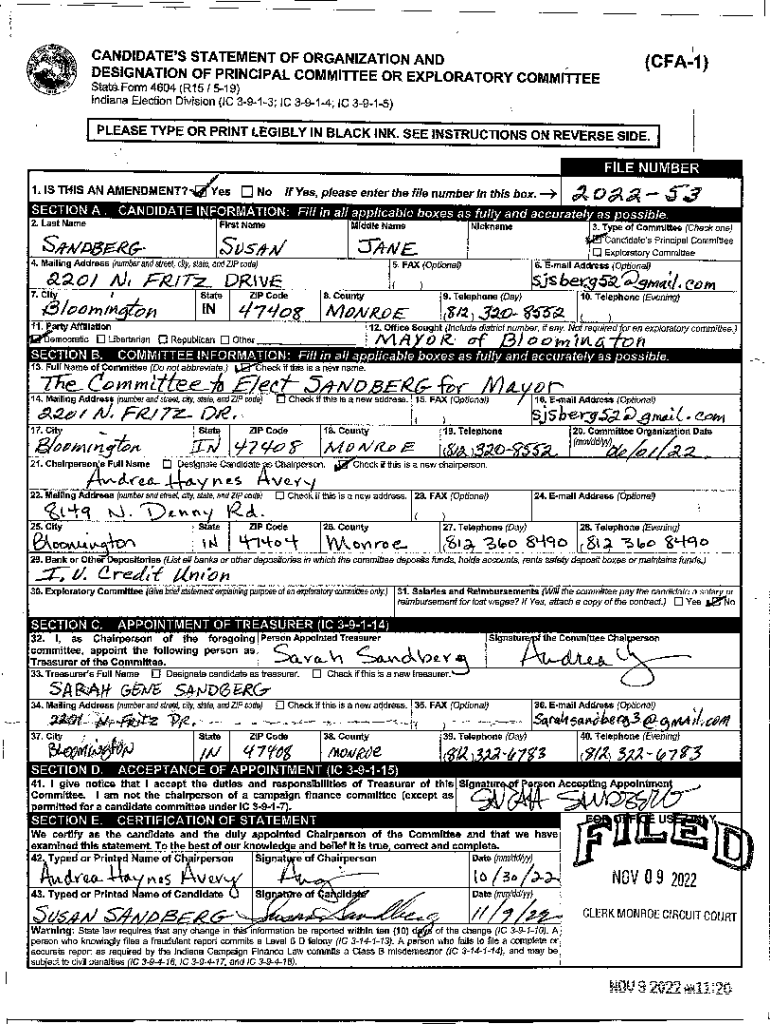 CANDIDATE'S STATEMENT OF ORGANIZATION AND
DESIGNATION OF PRINCIPAL COMMITTEE OR EXPLORATORY COMMITTEE
State Form 4604 (R15 / 5-19)
Indiana Election Division (IC 3-9-1-3; IC 3-9-1-4; IC 3-9-1-5)
(CFA-1)
PLEASE TYPE OR PRINT LEGIBLY IN BLACK INK. SEE INSTRUCTIONS ON REVERSE SIDE.
FILE NUMBER
1. IS THIS AN AMENDMENT? Yes No If Yes, please enter the file number in this box. → 2022-53
SECTION A. CANDIDATE INFORMATION: Fill in all applicable boxes as fully and accurately as possible.
2. Last Name First Name Middle Name Nickname 3. Type of Committee (Check one)
SANDBERG SUSAN JANE Candidate's Principal Committee
Exploratory Committee
4. Mailing Address (number and street, city, state, and ZIP code) 5. FAX (Optional) 6. E-mail Address (Optional)
2201 N. FRITZ DRIVE ( ) sjsberg52@gmail.com
7. City State ZIP Code 8. County 9. Telephone (Day) 10. Telephone (Evening)
Bloomington IN 47408 MONROE (812) 320-8552 ( )
11. Party Affiliation 12. Office Sought (Include district number, if any. Not required for an exploratory committee.)
Democratic Libertarian Republican Other MAYOR of Bloomington
SECTION B. COMMITTEE INFORMATION: Fill in all applicable boxes as fully and accurately as possible.
13. Full Name of Committee (Do not abbreviate.) Check if this is a new name.
The Committee to Elect SANDBERG for Mayor
14. Mailing Address (number and street, city, state, and ZIP code) Check if this is a new address. 15. FAX (Optional) 16. E-mail Address (Optional)
2201 N. FRITZ DR. ( ) sjsberg52@gmail.com
17. City State ZIP Code 18. County 19. Telephone 20. Committee Organization Date
(mm/dd/yy)
Bloomington IN 47408 MONROE (812) 320-8552 06/01/22
21. Chairperson's Full Name Designate Candidate as Chairperson. Check if this is a new chairperson.
Andrea Haynes Avery
22. Mailing Address (number and street, city, state, and ZIP code) Check if this is a new address. 23. FAX (Optional) 24. E-mail Address (Optional)
8149 N. Denny Rd. ( )
25. City State ZIP Code 26. County 27. Telephone (Day) 28. Telephone (Evening)
Bloomington IN 47404 Monroe (812) 360 8490 (812) 360 8490
29. Bank or Other Depositories (List all banks or other depositories in which the committee deposits funds, holds accounts, rents safety deposit boxes or maintains funds.)
I. U. Credit Union
30. Exploratory Committee (Give brief statement explaining purpose of an exploratory committee only.) 31. Salaries and Reimbursements (Will the committee pay the candidate a salary or
reimbursement for lost wages? If Yes, attach a copy of the contract.) Yes No
SECTION C. APPOINTMENT OF TREASURER (IC 3-9-1-14)
32. I, as Chairperson of the foregoing Person Appointed Treasurer Signature of the Committee Chairperson
committee, appoint the following person as Sarah Sandberg Andrea
Treasurer of the Committee.
33. Treasurer's Full Name Designate candidate as treasurer. Check if this is a new treasurer.
SARAH GENE SANDBERG
34. Mailing Address (number and street, city, state, and ZIP code) Check if this is a new address. 35. FAX (Optional) 36. E-mail Address (Optional)
2201 N. Fritz DR. ( ) sarahsandberg3@gmail.com
37. City State ZIP Code 38. County 39. Telephone (Day) 40. Telephone (Evening)
BLOOMINGTON IN 47408 MONROE (812) 322-6783 (812) 322-6783
SECTION D. ACCEPTANCE OF APPOINTMENT (IC 3-9-1-15)
41. I give notice that I accept the duties and responsibilities of Treasurer of this Signature of Person Accepting Appointment
Committee. I am not the chairperson of a campaign finance committee (except as
permitted for a candidate committee under IC 3-9-1-7). SANDBERG
SECTION E. CERTIFICATION OF STATEMENT FOR OFFICE USE ONLY
We certify as the candidate and the duly appointed Chairperson of the Committee and that we have
examined this statement. To the best of our knowledge and belief it is true, correct and complete.
FILED
42. Typed or Printed Name of Chairperson Signature of Chairperson Date (mm/dd/yy)
Andrea Haynes Avery 10/30/22
NOV 09 2022
43. Typed or Printed Name of Candidate Signature of Candidate Date (mm/dd/yy)
SUSAN SANDBERG Susan Sandberg 11/9/22
CLERK MONROE CIRCUIT COURT
Warning: State law requires that any change in this information be reported within ten (10) days of the change (IC 3-9-1-10). A
person who knowingly files a fraudulent report commits a Level 6 D felony (IC 3-14-1-13). A person who fails to file a complete or
accurate report as required by the Indiana Campaign Finance Law commits a Class B misdemeanor (IC 3-14-1-14), and may be
subject to civil penalties (IC 3-9-4-16, IC 3-9-4-17, and IC 3-9-4-18).
NOV 9 2022 AM11:20